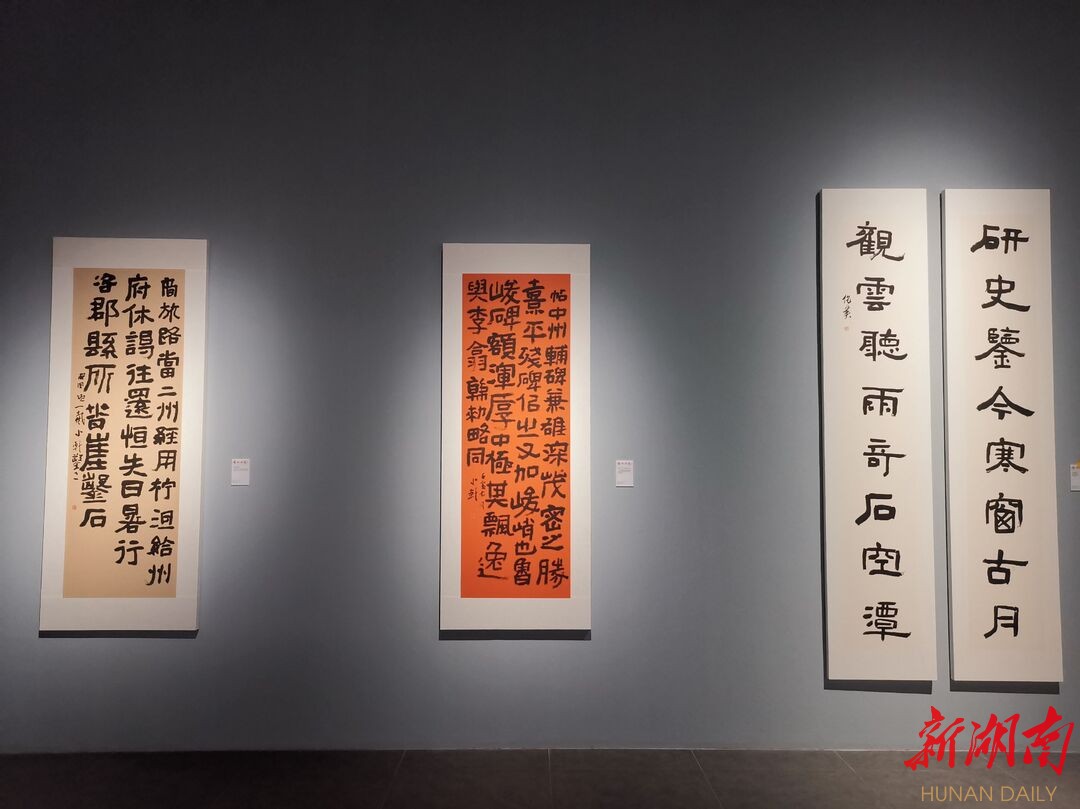 商旅路當二州經用柠沮給州
府休謁往還恒失日晷行
郡縣所崖鑿石
帖中州輔碑兼雄深茂密之勝
熹平殘碑佀之又加峻峭也魯
峻碑額渾厚中極其飄逸
與李翕韓勑略同
小軒
研史鑒今寒窗古月
觀雲聽雨奇石空潭
新湖南
HUNAN DAILY